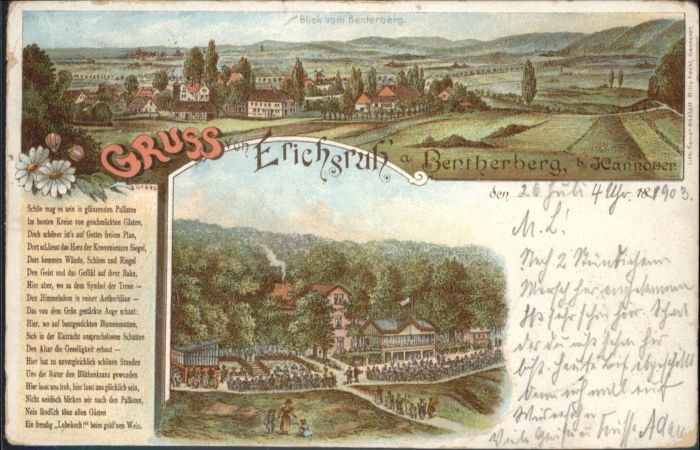 Blick vom Benterberg.
GRUSS von Erichsruh' a. Bentherberg, b. Hannover.
den 26 Juli 4 Uhr. 18 1903.
Schön mag es sein in glänzenden Palästen
Im bunten Kreise von geschmückten Gästen,
Doch schöner ist's auf Gottes freiem Plan,
Dort schliesst das Herz der Konvenienzen Siegel,
Dort hemmen Wände, Schloss und Riegel
Den Geist und das Gefühl auf ihrer Bahn,
Hier aber, wo zu dem Symbol der Treue —
Den Himmelsdom in reiner Aetherbläue —
Das von dem Grün gestärkte Auge schaut:
Hier, wo auf buntgestickten Blumenmatten,
Sich in der Eintracht anspruchslosem Schatten
Den Altar die Geselligkeit erbaut —
Hier hat zu unvergleichlich schönen Stunden
Uns die Natur den Blüthenkranz gewunden
Hier lasst uns froh, hier lasst uns glücklich sein,
Nicht neidisch blicken wir nach den Palästen,
Nein ländlich töne allen Gästen
Ein freudig „Lebehoch!" beim gold'nen Wein.
M. L!
Nach 2 stündichem
Marsch hier angekommen
ist sehr schön hier. Schad
der du nicht
bist. Heute
auf
Wiedersehen
Viele Grüße u.